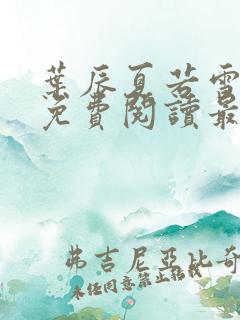 葉辰夏若雪
免費閱讀最
弗吉尼亞比奇
未經同意禁止轉載